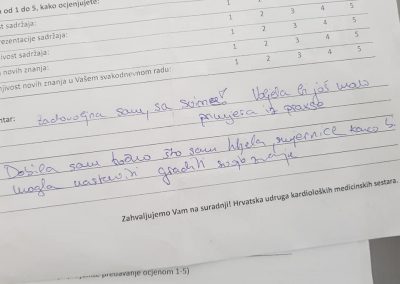 od 1 do 5, kako ocjenjujete:
st sadržaja: 1 2 3 4 5
ezentacije sadržaja: 1 2 3 4 5
ivost sadržaja: 1 2 3 4 5
novih znanja: 1 2 3 4 5
njivost novih znanja u Vašem svakodnevnom radu: 1 2 3 4 5
ntar: zadovoljna sam, sa svime! Htjela bi još malo
primjera iz prakse
Dobila sam točno što sam htjela, smjernice kako b
mogla nastaviti graditi svoje znanje
Zahvaljujemo Vam na suradnji! Hrvatska udruga kardioloških medicinskih sestara.
predavanje ocjenom 1-5)